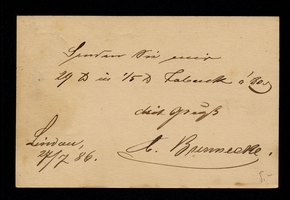 Senden Sie mir
29 ₶ in 1/5 ₶ Taback á
mit Gruß
Lindau,
27/7 86.
Brennecke.